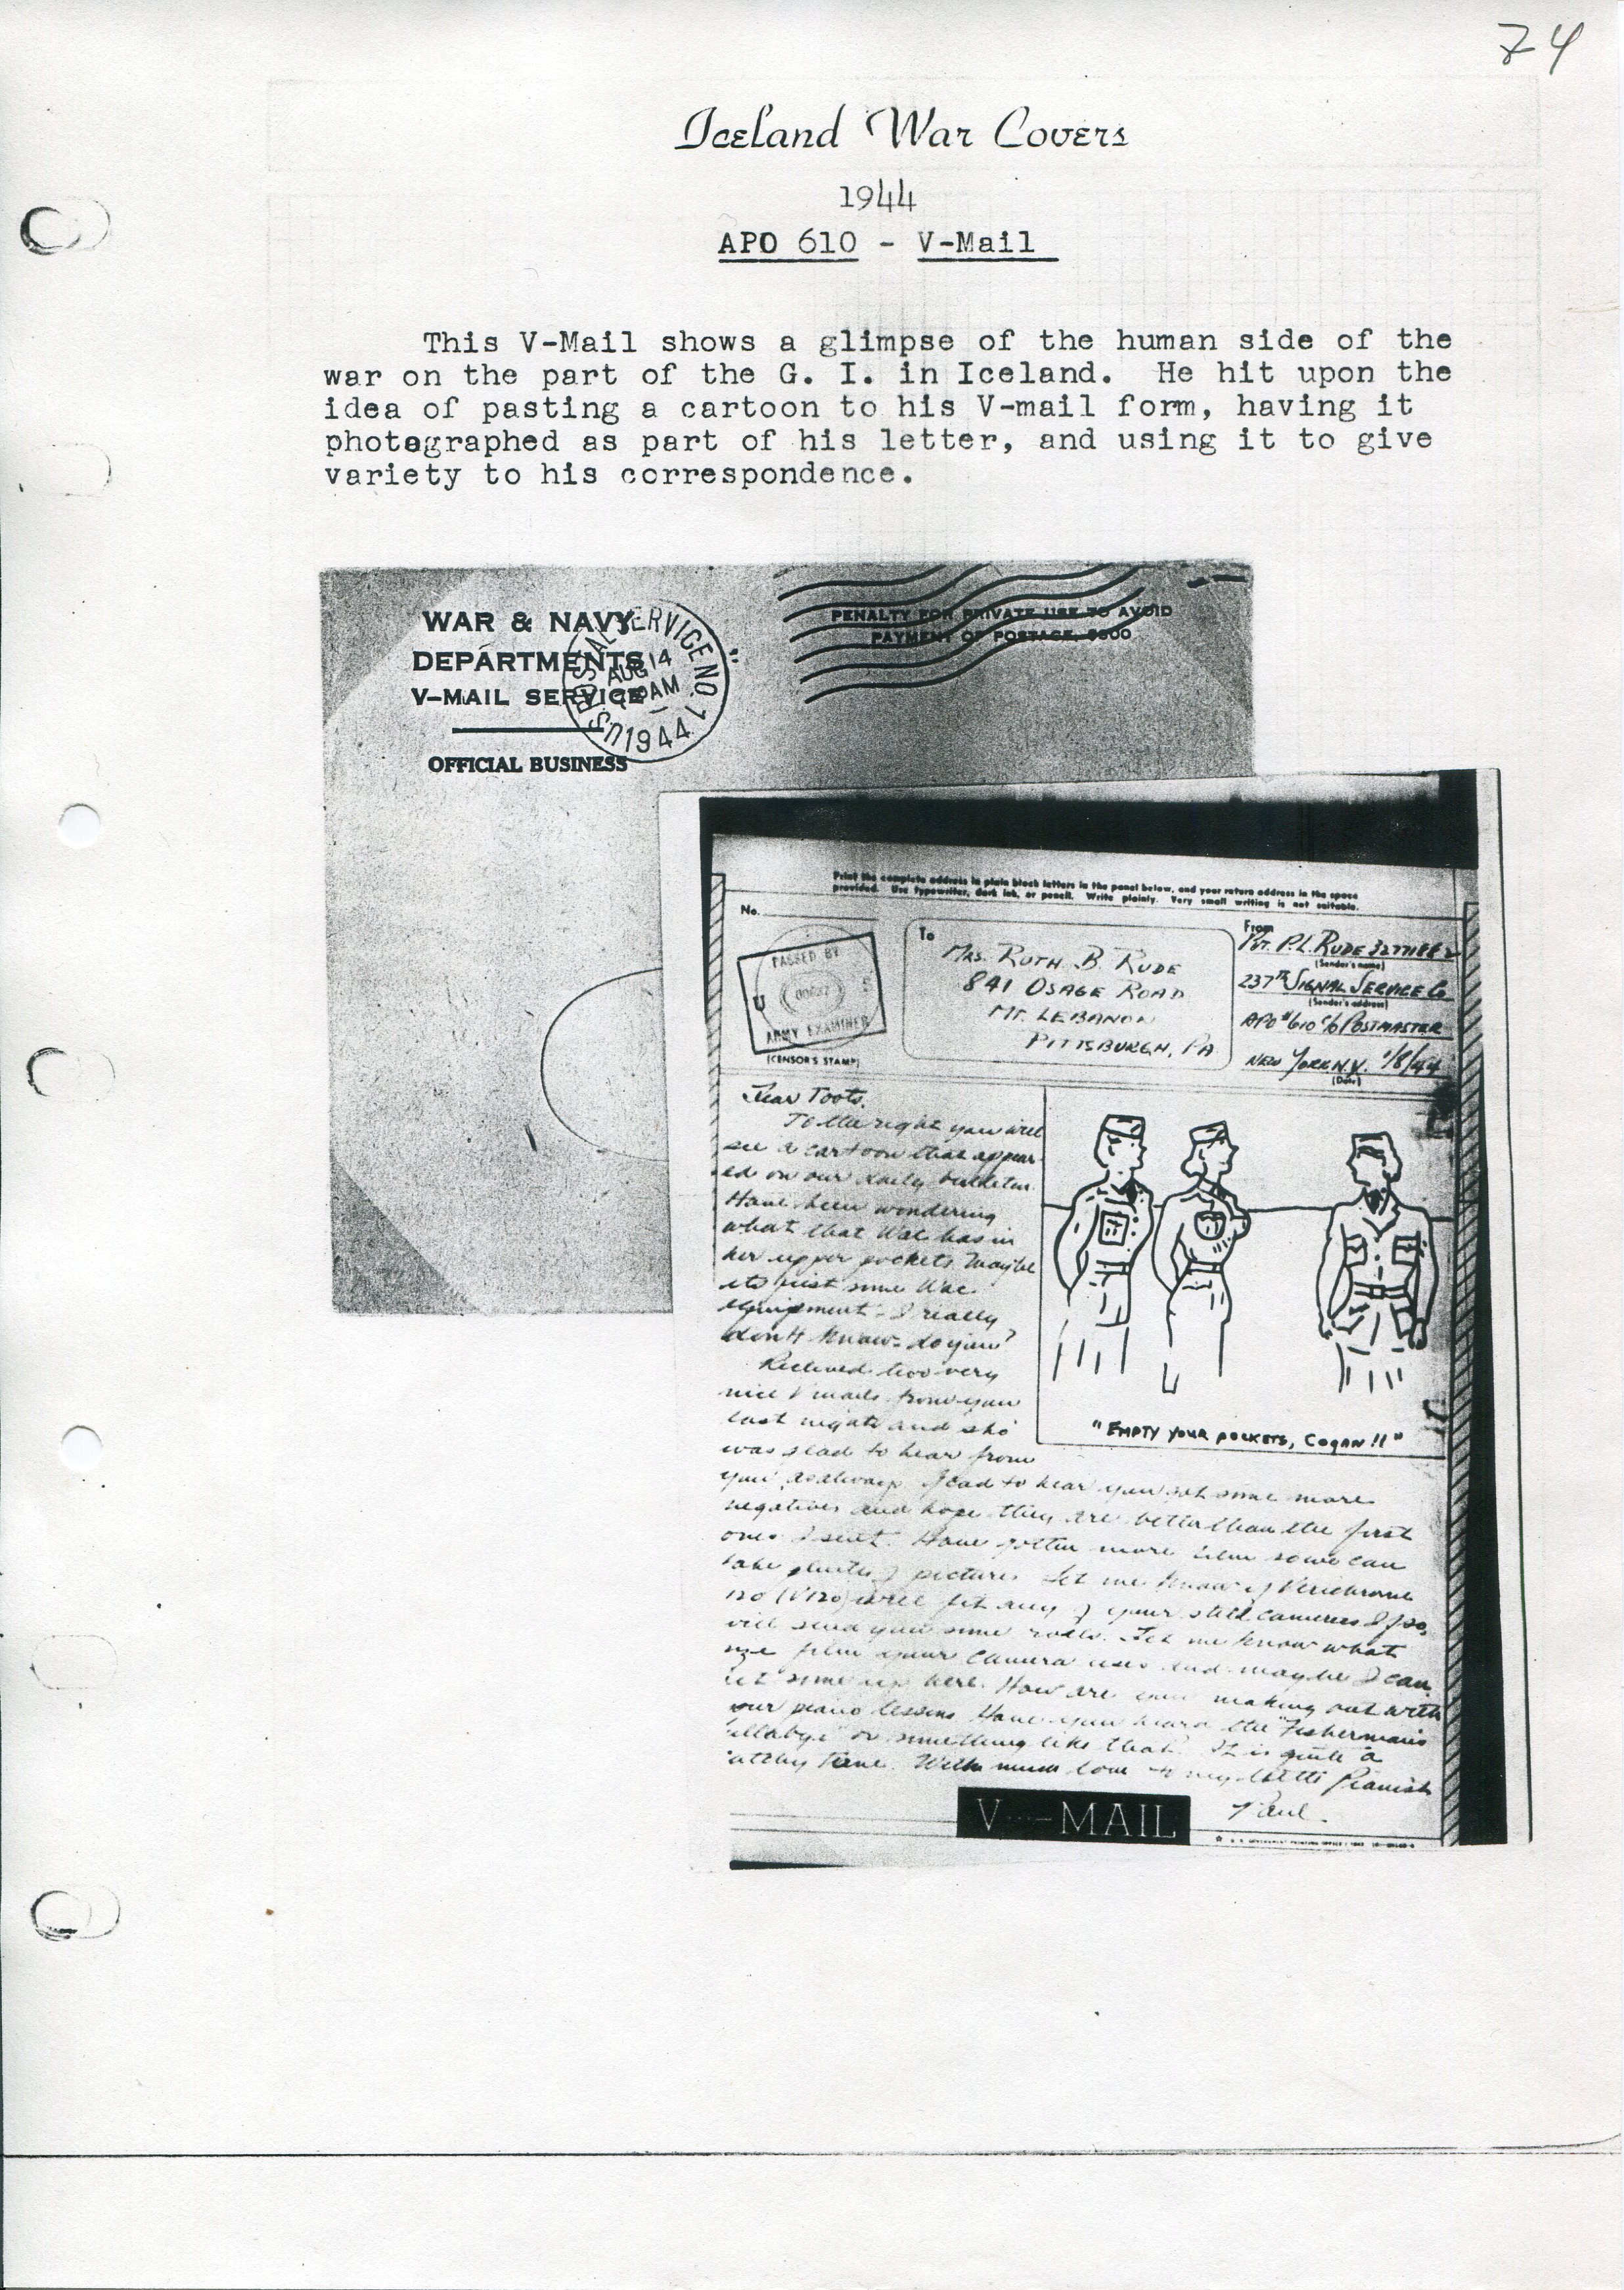 74
Iceland War Covers
1944
APO 610 - V-Mail
This V-Mail shows a glimpse of the human side of the
war on the part of the G. I. in Iceland.  He hit upon the
idea of pasting a cartoon to his V-mail form, having it
photographed as part of his letter, and using it to give
variety to his correspondence.
WAR & NAVY
DEPARTMENTS
V-MAIL SERVICE
OFFICIAL BUSINESS
U.S. POSTAL SERVICE NO. 1
AUG 14
AM
1944
PENALTY FOR PRIVATE USE TO AVOID
PAYMENT OF POSTAGE, $300
Print the complete address in plain block letters in the panel below, and your return address in the space
provided. Use typewriter, dark ink, or pencil. Write plainly. Very small writing is not suitable.
No.
PASSED BY
U S
ARMY EXAMINER
(CENSOR'S STAMP)
To
MRS. RUTH B. RUDE
841 OSAGE ROAD
MT. LEBANON
PITTSBURGH, PA
From
PVT. P.L. RUDE
(Sender's name)
237TH SIGNAL SERVICE CO
(Sender's address)
APO #610 c/o POSTMASTER
NEW YORK N.Y. /8/44
(Date)
Dear Toots,
To the right you will
see a cartoon that appear-
ed on our daily bulletin.
Have been wondering
what that Wac has in
her upper pockets. Maybe
its just some Wac
equipment - I really
don't know - do you?
Recieved two very
nice V mails from you
last night and sho'
was glad to hear from
you as always. Glad to hear you got some more
negatives and hope they are better than the first
ones I sent. Have gotten more film so we can
take plenty of pictures. Let me know if Verichrome
120 (V120) will fit any of your still cameras. If so,
will send you some rolls. Let me know what
size film your camera uses and maybe I can
get some up here. How are you making out with
your piano lessons. Have you heard the "Fisherman's
ullabye" or something like that? It is quite a
catchy tune. With much love to my little Pianist
Paul.
"EMPTY YOUR POCKETS, COGAN!!"
V---MAIL